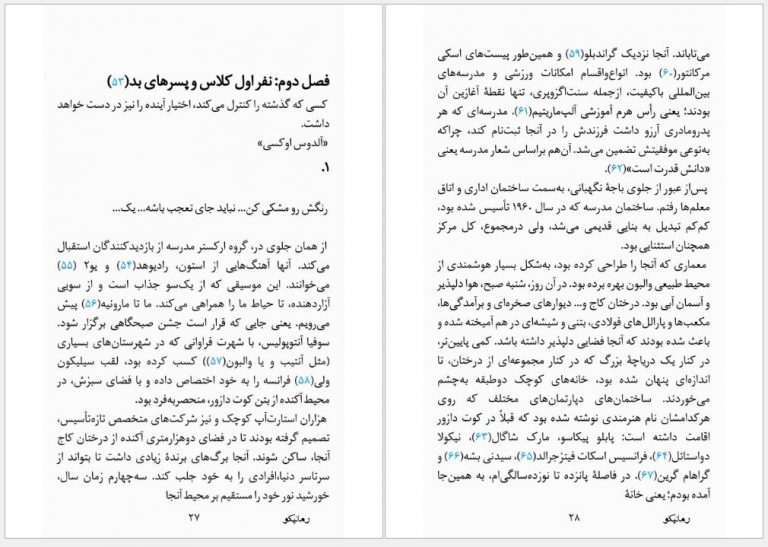 فصل دوم: نفر اول کلاس و پسرهای بد(۵۳)
کسی که گذشته را کنترل می‌کند، اختیار آینده را نیز در دست خواهد
داشت.
«آلدوس اوکسی»
۱.
رنگش رو مشکی کن... نباید جای تعجب باشه... یک...
از همان جلوی در، گروه ارکستر مدرسه از بازدیدکنندگان استقبال
می‌کند. آنها آهنگ‌هایی از استون، رادیوهد(۵۴) و یو۲ (۵۵)
می‌خوانند. این موسیقی که از یک‌سو جذاب است و از سویی
آزاردهنده، تا حیاط ما را همراهی می‌کند. ما تا مارونیه(۵۶) پیش
می‌رویم. یعنی جایی که قرار است جشن صبحگاهی برگزار شود.
سوفیا آنتوپولیس، با شهرت فراوانی که در شهرستان‌های بسیاری
(مثل آنتیب و یا والبون(۵۷)) کسب کرده بود، لقب سیلیکون
ولی(۵۸) فرانسه را به خود اختصاص داده و با فضای سبزش، در
محیط آکنده از بتن کوت دازور، منحصربه‌فرد بود.
هزاران استارت‌آپ کوچک و نیز شرکت‌های متخصص تازه‌تأسیس،
تصمیم گرفته بودند تا در فضای دوهزارمتری آکنده از درختان کاج
آنجا، ساکن شوند. آنجا برگ‌های برندهٔ زیادی داشت تا بتواند از
سرتاسر دنیا،افرادی را به خود جلب کند. سه‌چهارم زمان سال،
خورشید نور خود را مستقیم بر محیط آنجا
رمانیکو
۲۷
می‌تاباند. آنجا نزدیک گراندبلو(۵۹) و همین‌طور پیست‌های اسکی
مرکانتور(۶۰) بود. انواع‌واقسام امکانات ورزشی و مدرسه‌های
بین‌المللی باکیفیت، ازجمله سنت‌اگزوپری، تنها نقطهٔ آغازین آن
بودند؛ یعنی رأس هرم آموزشی آلپ‌ماریتیم(۶۱). مدرسه‌ای که هر
پدرومادری آرزو داشت فرزندش را در آنجا ثبت‌نام کند، چراکه
به‌نوعی موفقیتش تضمین می‌شد. آن‌هم براساس شعار مدرسه یعنی
«دانش قدرت است»(۶۲).
پس‌از عبور از جلوی باجهٔ نگهبانی، به‌سمت ساختمان اداری و اتاق
معلم‌ها رفتم. ساختمان مدرسه که در سال ۱۹۶۰ تأسیس شده بود،
کم‌کم تبدیل به بنایی قدیمی می‌شد، ولی درمجموع، کل مرکز
همچنان استثنایی بود.
معماری که آنجا را طراحی کرده بود، به‌شکل بسیار هوشمندی از
محیط طبیعی والبون بهره برده بود. در آن روز، شنبه صبح، هوا دلپذیر
و آسمان آبی بود. درختان کاج و... دیوارهای صخره‌ای و برآمدگی‌ها،
مکعب‌ها و پارالل‌های فولادی، بتنی و شیشه‌ای در هم آمیخته شده و
باعث شده بودند که آنجا فضایی دلپذیر داشته باشد. کمی پایین‌تر،
در کنار یک دریاچهٔ بزرگ که در کنار مجموعه‌ای از درختان، تا
اندازه‌ای پنهان شده بود، خانه‌های کوچک دوطبقه به‌چشم
می‌خوردند. ساختمان‌های دپارتمان‌های مختلف که روی
هرکدامشان نام هنرمندی نوشته شده بود که قبلاً در کوت دازور
اقامت داشته است: پابلو پیکاسو، مارک شاگال(۶۳)، نیکولا
دواستائل(۶۴)، فرانسیس اسکات فیتزجرالد(۶۵)، سیدنی بشه(۶۶) و
گراهام گرین(۶۷). در فاصلهٔ پانزده تا نوزده‌سالگی‌ام، به همین‌جا
آمده بودم؛ یعنی خانهٔ
رمانیکو
۲۸